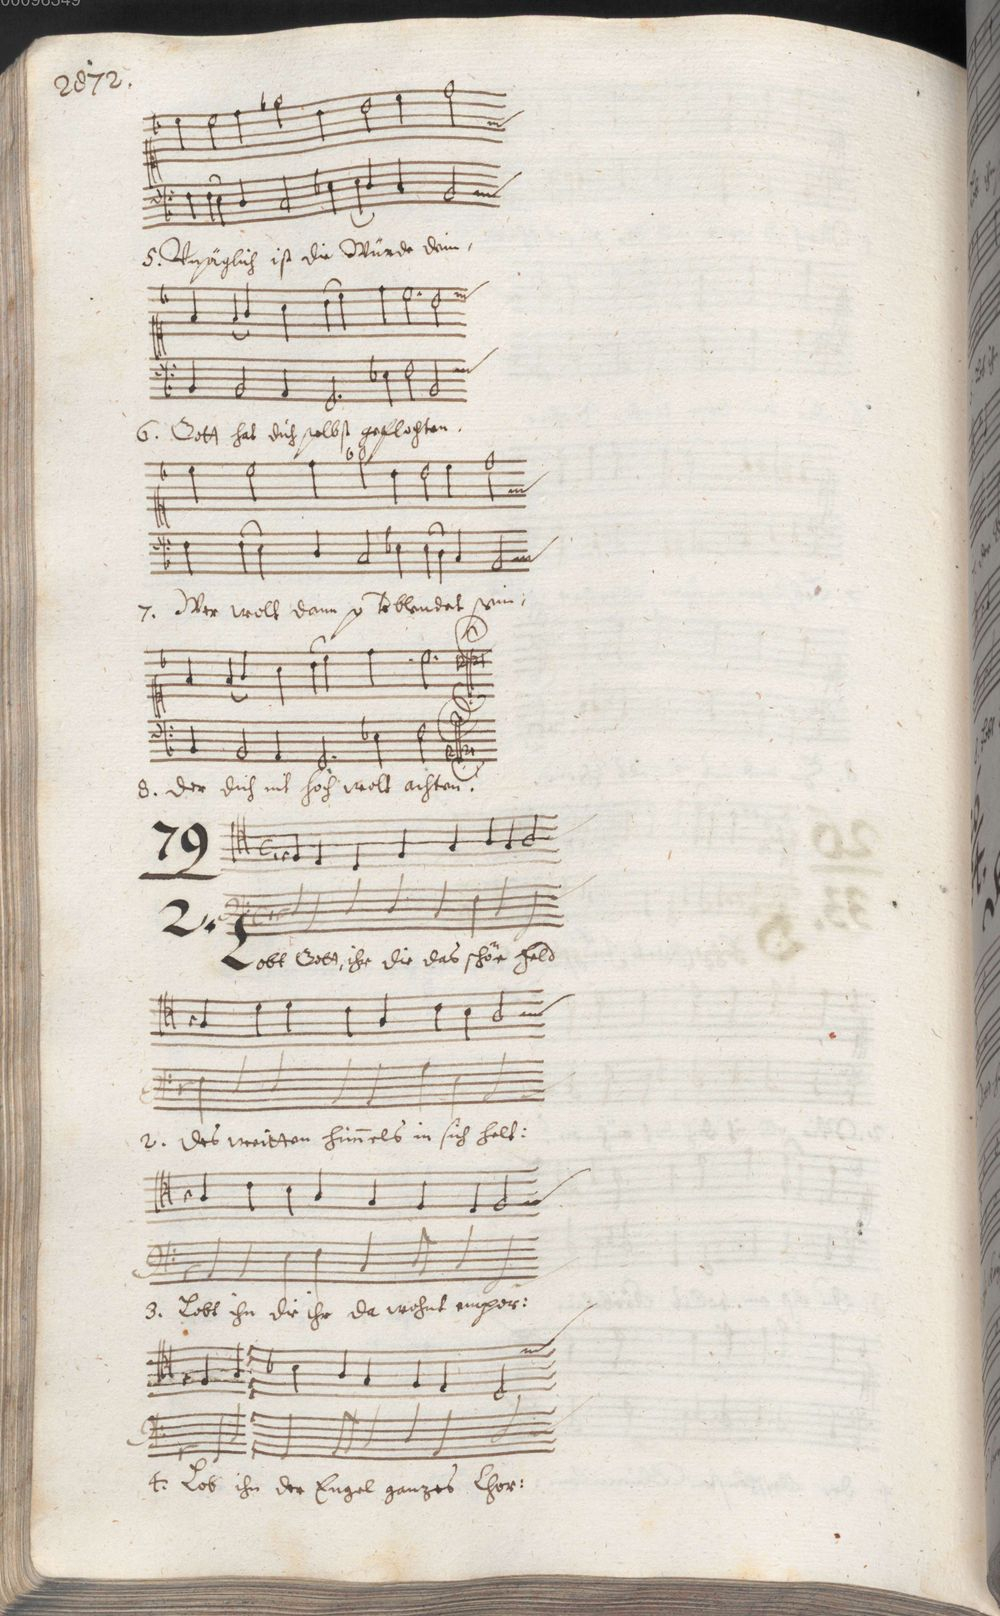 00096349
2872.
5. Unsäglich ist die Würde dein,
6. Gott hat dich selbst geflochten.
7. Wer wolt dann so verblendet sein,
8. der dich nit hoch wolt achten.
79
2. Lobt Gott, ihr die das schön Feld
2. des weitten Him̄els in sich helt:
3. Lobt ihn die ihr da wohnt empor:
4. Lob ihn der Engel ganzes Chor: